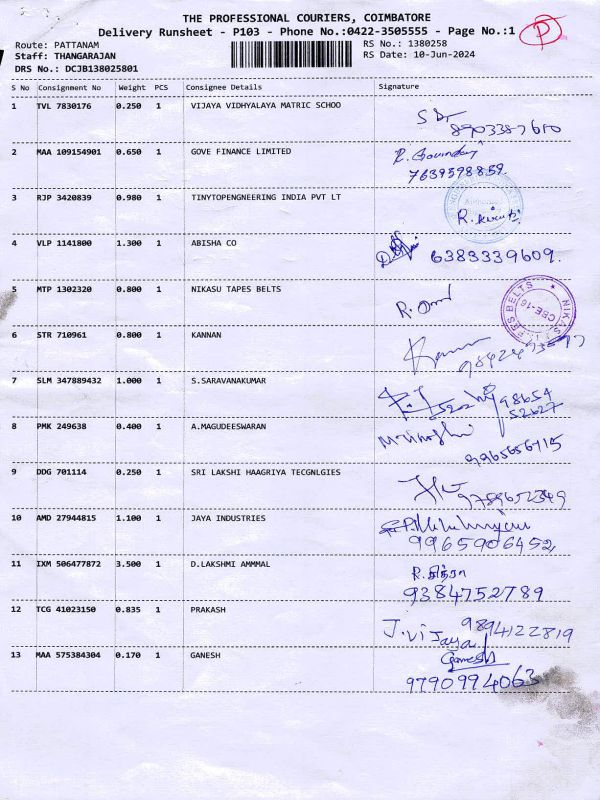 THE PROFESSIONAL COURIERS, COIMBATORE
Delivery Runsheet - P103 - Phone No.:0422-3505555 - Page No.:1 P
Route: PATTANAM RS No.: 1380258
Staff: THANGARAJAN RS Date: 10-Jun-2024
DRS No.: DCJB138025801
S No Consignment No Weight PCS Consignee Details Signature
1 TVL 7830176 0.250 1 VIJAYA VIDHYALAYA MATRIC SCHOO
8903387610
2 MAA 109154901 0.650 1 GOVE FINANCE LIMITED R. Govindaraj
7639598859.
3 RJP 3420839 0.980 1 TINYTOPENGNEERING INDIA PVT LT
4 VLP 1141800 1.300 1 ABISHA CO
6383339609.
5 MTP 1302320 0.800 1 NIKASU TAPES BELTS
6 STR 710961 0.800 1 KANNAN
7 SLM 347889432 1.000 1 S.SARAVANAKUMAR
98654
52627
8 PMK 249638 0.400 1 A.MAGUDEESWARAN
9965656715
9 DDG 701114 0.250 1 SRI LAKSHI HAAGRIYA TECGNLGIES
9789652349
10 AMD 27944815 1.100 1 JAYA INDUSTRIES
9965906452
11 IXM 506477872 3.500 1 D.LAKSHMI AMMMAL R.சித்ரா
9384752789
12 TCG 41023150 0.835 1 PRAKASH 9894122819
J.Vijaya
13 MAA 575384304 0.170 1 GANESH Ganesh
9790994063